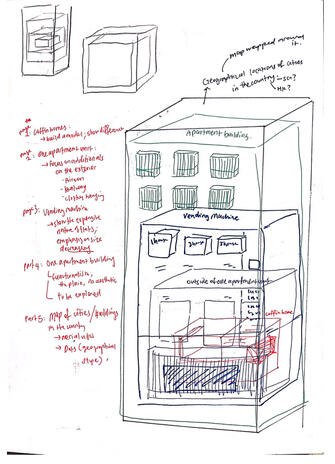 map wrapped around
it.
Geographical locations of cities
in the country
Apartment building
Part
1: Coffin homes:
build a model; show difference
Part
2: One apartment unit:
Focus on additionals
on the exterior
- Aircon
- balcony
- clothes hanging
Part 3: Vending machine
show the expensive
nature of flats;
emphasis on size
decreasing
Part 4: One apartment building
Functionalism,
plain, no aesthetic
to be explained
Part 5: Map of cities/buildings
in the country
→ aerial view
→ Dots (geographical
Vending machine
outside of one apartment unit
coffin home